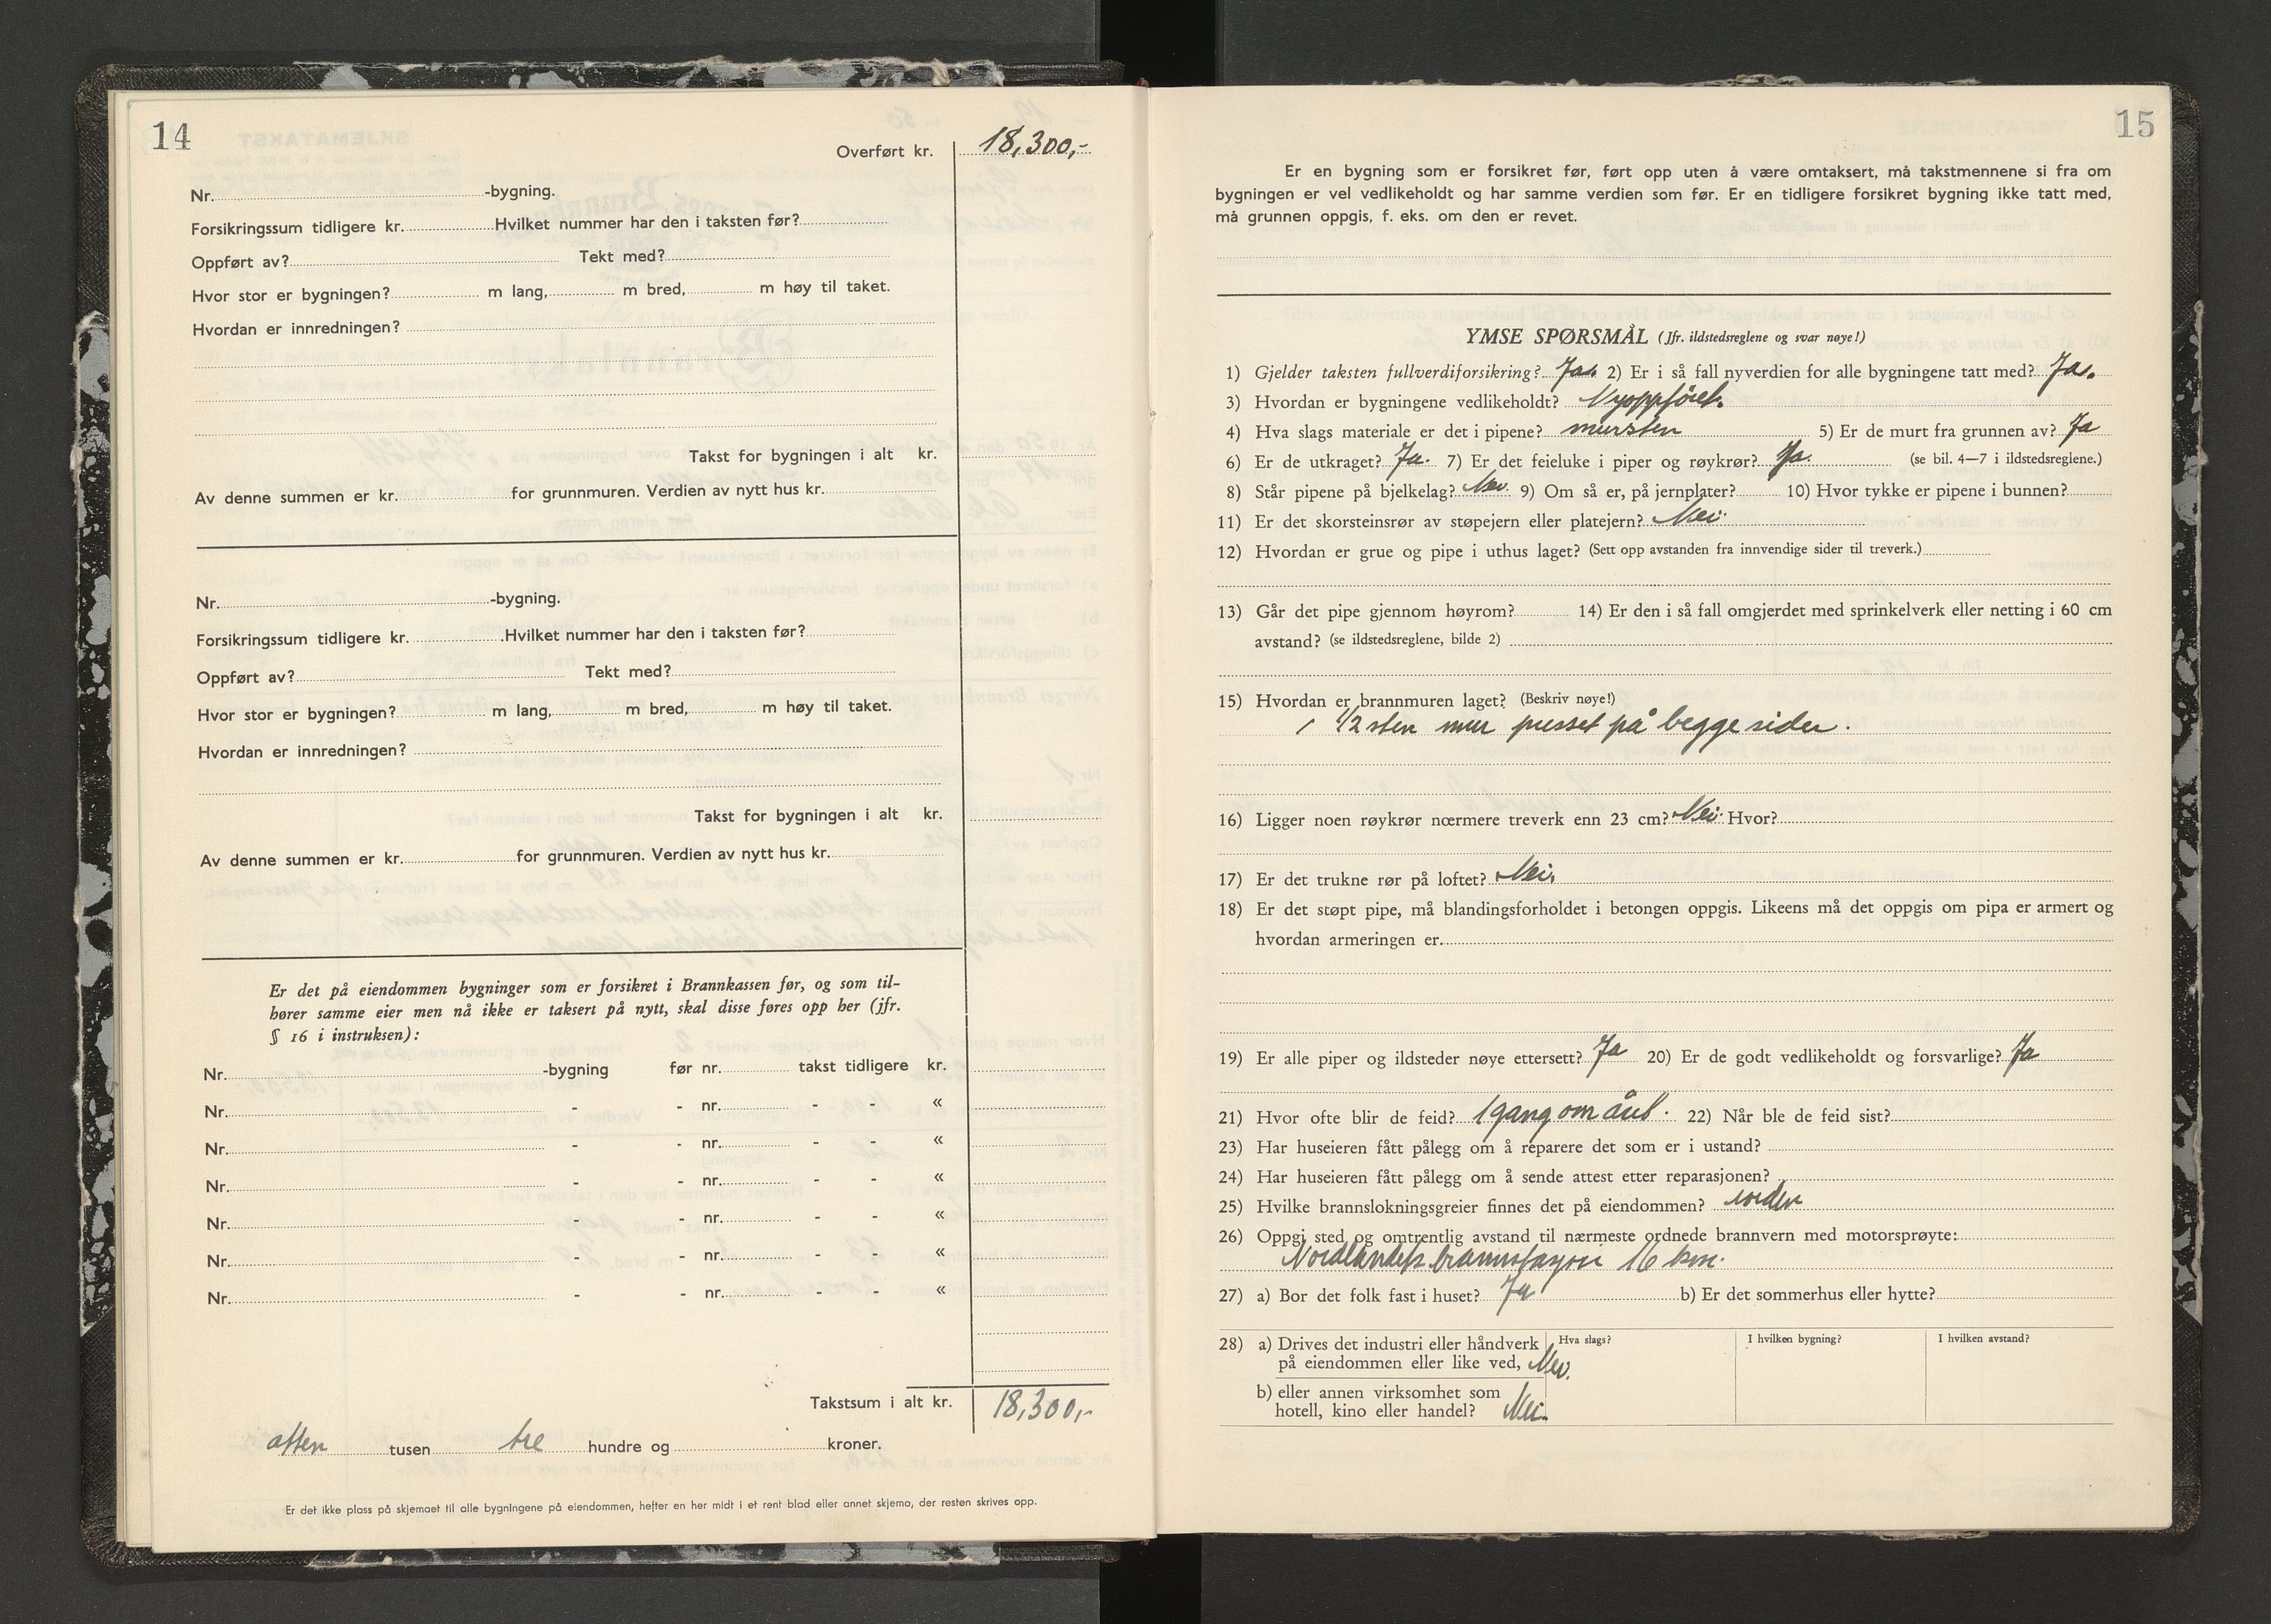 14
Overført kr. 18,300,-
Nr. -bygning.
Forsikringssum tidligere kr. Hvilket nummer har den i taksten før?
Oppført av? Tekt med?
Hvor stor er bygningen? m lang, m bred, m høy til taket.
Hvordan er innredningen?
Takst for bygningen i alt kr.
Av denne summen er kr. for grunnmuren. Verdien av nytt hus kr.
Nr. -bygning.
Forsikringssum tidligere kr. Hvilket nummer har den i taksten før?
Oppført av? Tekt med?
Hvor stor er bygningen? m lang, m bred, m høy til taket.
Hvordan er innredningen?
Takst for bygningen i alt kr.
Av denne summen er kr. for grunnmuren. Verdien av nytt hus kr.
Er det på eiendommen bygninger som er forsikret i Brannkassen før, og som til-
hører samme eier men nå ikke er taksert på nytt, skal disse føres opp her (jfr.
§ 16 i instruksen):
Nr. -bygning før nr. takst tidligere kr.
Nr. - - nr. - - «
Nr. - - nr. - - «
Nr. - - nr. - - «
Nr. - - nr. - - «
Nr. - - nr. - - «
Nr. - - nr. - - «
Takstsum i alt kr. 18,300,-
atten tusen tre hundre og kroner.
Er det ikke plass på skjemaet til alle bygningene på eiendommen, hefter en her midt i et rent blad eller annet skjema, der resten skrives opp.
15
Er en bygning som er forsikret før, ført opp uten å være omtaksert, må takstmennene si fra om
bygningen er vel vedlikeholdt og har samme verdien som før. Er en tidligere forsikret bygning ikke tatt med,
må grunnen oppgis, f. eks. om den er revet.
YMSE SPØRSMÅL (Jfr. ildstedsreglene og svar nøye!)
1) Gjelder taksten fullverdiforsikring? Ja. 2) Er i så fall nyverdien for alle bygningene tatt med? Ja.
3) Hvordan er bygningene vedlikeholdt? Nyoppføret.
4) Hva slags materiale er det i pipene? mursten 5) Er de murt fra grunnen av? Ja
6) Er de utkraget? Ja. 7) Er det feieluke i piper og røykrør? Ja. (se bil. 4—7 i ildstedsreglene.)
8) Står pipene på bjelkelag? Nei. 9) Om så er, på jernplater? 10) Hvor tykke er pipene i bunnen?
11) Er det skorsteinsrør av støpejern eller platejern? Nei
12) Hvordan er grue og pipe i uthus laget? (Sett opp avstanden fra innvendige sider til treverk.)
13) Går det pipe gjennom høyrom? 14) Er den i så fall omgjerdet med sprinkelverk eller netting i 60 cm
avstand? (se ildstedsreglene, bilde 2)
15) Hvordan er brannmuren laget? (Beskriv nøye!)
1 1/2 sten mur pusset på begge sider.
16) Ligger noen røykrør nærmere treverk enn 23 cm? Nei. Hvor?
17) Er det trukne rør på loftet? Nei.
18) Er det støpt pipe, må blandingsforholdet i betongen oppgis. Likeens må det oppgis om pipa er armert og
hvordan armeringen er.
19) Er alle piper og ildsteder nøye ettersett? Ja 20) Er de godt vedlikeholdt og forsvarlige? Ja
21) Hvor ofte blir de feid? 1 gang om året. 22) Når ble de feid sist?
23) Har huseieren fått pålegg om å reparere det som er i ustand?
24) Har huseieren fått pålegg om å sende attest etter reparasjonen?
25) Hvilke brannslokningsgreier finnes det på eiendommen?
26) Oppgi sted og omtrentlig avstand til nærmeste ordnede brannvern med motorsprøyte:
16 km.
27) a) Bor det folk fast i huset? Ja b) Er det sommerhus eller hytte?
28) a) Drives det industri eller håndverk Hva slags? I hvilken bygning? I hvilken avstand?
på eiendommen eller like ved, Nei.
b) eller annen virksomhet som
hotell, kino eller handel? Nei.